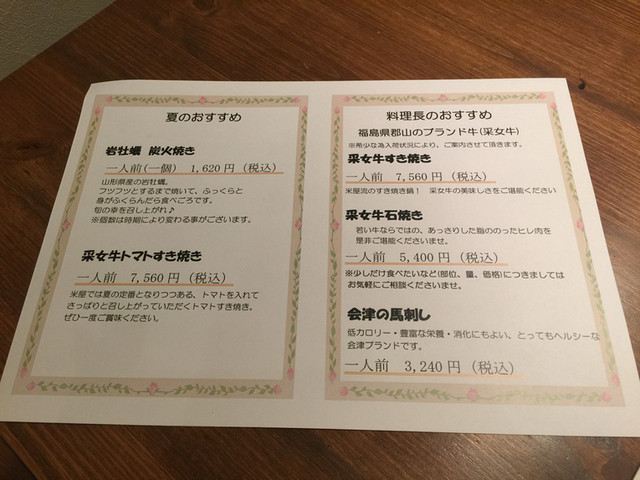 夏のおすすめ
岩牡蠣 炭火焼き
一人前(一個) 1,620円(税込)
山形県産の岩牡蠣。
フツフツとするまで焼いて、ふっくらと
身がふくらんだら食べごろです。
旬の幸を召し上がれ♪
※個数は時期により変わる事がございます。
采女牛トマトすき焼き
一人前 7,560円(税込)
米屋では夏の定番となりつつある、トマトを入れて
さっぱりと召し上がっていただくトマトすき焼き。
ぜひ一度ご賞味ください。
料理長のおすすめ
福島県郡山のブランド牛(采女牛)
※希少な為入荷状況により、ご案内させて頂きます。
采女牛すき焼き
一人前 7,560円(税込)
米屋流のすき焼き鍋! 采女牛の美味しさをご堪能ください
采女牛石焼き
若い牛ならではの、あっさりした脂ののったヒレ肉を
是非ご堪能くださいませ。
一人前 5,400円(税込)
※少しだけ食べたいなど(部位、量、価格)につきましては
お気軽にご相談くださいませ。
会津の馬刺し
低カロリー・豊富な栄養・消化にもよい、とってもヘルシーな
会津ブランドです。
一人前 3,240円(税込)